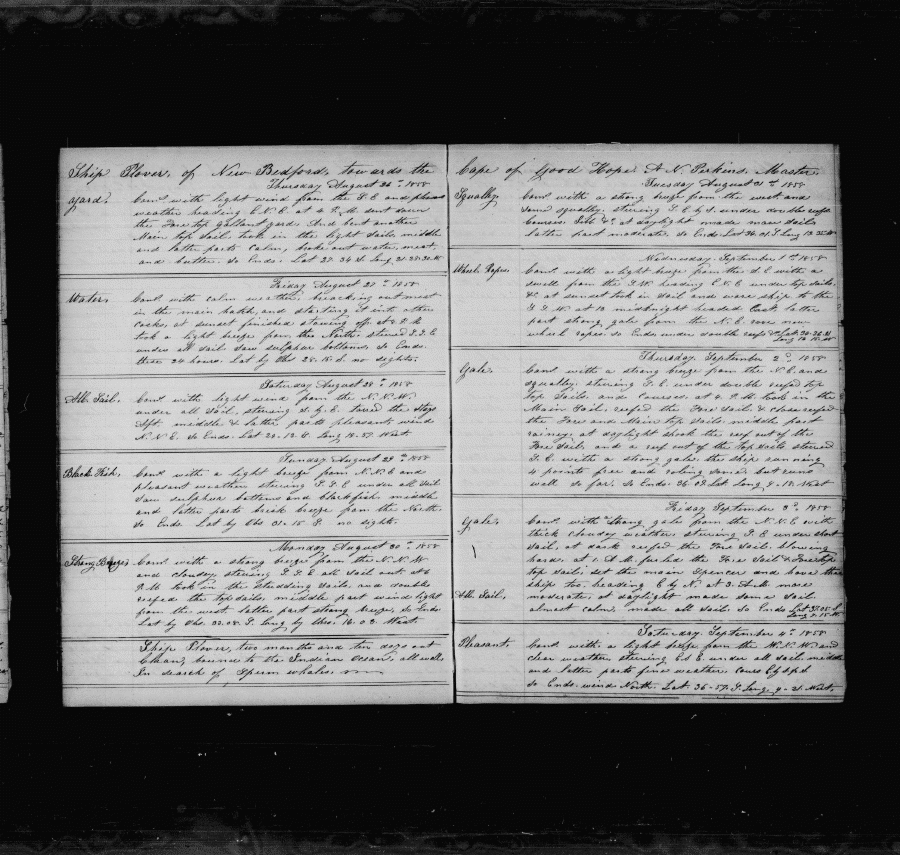 Ship Plover, of New Bedford, towards the
Thursday August 26th 1858
yard. Coms with light wind from the S.E. and pleasant
weather heading E.N.E. at 4 P.M. sent down
the Fore top Gallant yard. And sent another
Main top Sail, took in the light Sails, middle
and latter parts Calm, broke out water, meat
and butter. So Ends. Lat 27.34 S. Long 21.28.30 W
Friday August 27th 1858
Water. Coms with calm weather, breaking out meat
in the main hatch, and starting it into other
casks, at sunset finished stowing off. at 8 P.M.
took a light breeze from the North. steered S.S.E.
under all sail saw sulphur bottoms. So Ends
these 24 hours. Lat by Obs 28.15 S. no sights.
Saturday August 28th 1858
All Sail. Coms with light wind from the N.N.W.
under all Sail, steering S. by E. the Stays
Aft. middle & latter parts pleasant wind
N.N.E. So Ends. Lat 29.12 S. Long 18.57 West
Sunday August 29th 1858
Black Fish. Coms with a light breeze from N.N.E and
pleasant weather steering S.S.E under all sail
saw sulphur bottoms and blackfish. middle
and latter parts brisk breeze from the North.
So Ends Lat by Obs 31.15 S. no sights.
Monday August 30th 1858
Strong Breezes Coms with a strong breeze from the N.N.W
and cloudy, steering S.S.E all sail out at 6
P.M. took in the studding sails, and double
reefed the topsails, middle part wind light
from the west. latter part strong breeze, So Ends
Lat by Obs. 33.08. S. Long by Obs. 16.03 West
Ship Plover, two months and ten days out
Clean, bound to the Indian Ocean, all well
In search of Sperm whales.
Cape of Good Hope. A. N. Perkins, Master.
Tuesday August 31st 1858
Squally. Coms with a strong breeze from the west, and
some squally, steering S.E by S. under double reefed
Courses Jibb &c. at daylight made more sails
latter part moderate. So Ends Lat 34. S Long 13.35 W
Wednesday. September 1st 1858
Wheel Ropes. Coms with a light breeze from the S.E with a
swell from the S.W. heading E.N.E under top sails
&c. at sunset took in sail and wore ship to the
S.S.W. at 12 midnight headed East, latter
part strong gale from the N.E. rove new
wheel ropes. So Ends under double reefs Lat. 34.36 S
Long 12.15 W
Thursday. September 2d, 1858
Gale. Coms with a strong breeze from the N.E. and
squally. steering S.E. under double reefed top
top Sails and Courses. at 4. P.M. took in the
Main Sail. reefed the Fore Sail & close reefed
the Fore and Main top Sails. middle part
rainy. at daylight shook the reef out of the
Fore Sail. and a reef out of the top sails steered
S.E. with a strong gale, the ship running
4 points free and roling some. but runs
well so far. So Ends. 36.09. Lat Long 9.18. West
Friday September 3d, 1858
Gale. Coms with strong gale from the N.N.E. with
thick cloudy weather. steering S.E. under short
sail, at dark reefed the Fore Sail. blowing
hard. at 1. A.M. furled the Fore Sail & Fore top
top Sail. set the main Spencer and hove the
ship too. heading E by N. at 3. A.M. more
All Sail. moderate, at daylight made some sail
almost calm. made all Sail. So Ends Lat 37.05 S
Long 9.15 W
Saturday. September 4th, 1858
Pleasant. Coms with a light breeze from the W.N.W. and
clear weather. steering E by S. under all sail, middle
and latter parts fine weather. Cours E by S
So Ends. wind North. Lat. 36-57. S Long. 4-21. West.